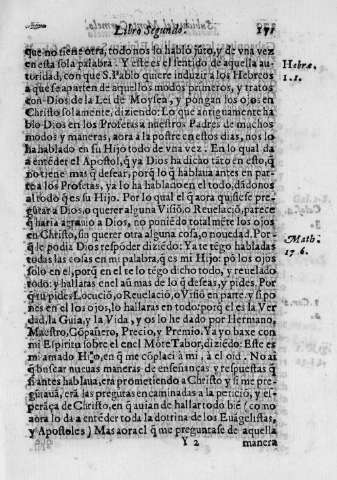 Libro Segundo. 171
que no tiene otra, todo nos lo habló jūto, y de vna vez
en esta sola palabra. Y este es el sentido de aquella au-
toridad, con que S. Pablo quiere induzir a los Hebreos
Hebræ.
a que se aparten de aquellos modos primeros, y tratos
1. 1.
con Dios de la Lei de Moysen, y pongan los ojos en
Christo solamente, diziendo: Lo que antiguamente ha
blò Dios en los Profetas a nuestros Padres de muchos
modos y maneras, aora a la postre en estos dias, nos lo
ha hablado en su Hijo todo de vna vez. En lo qual da
a entēder el Apostol, q̄ ya Dios ha dicho tāto en esto, q̄
no tiene mas q̄ desear, porq̄ lo q̄ hablaua antes en par-
te a los Profetas, ya lo ha hablado en el todo, dādonos
al todo q̄ es su Hijo. Por lo qual el q̄ aora quisiese pre-
gūtar a Dios, o querer alguna Visiō, o Reuelaciō, parece
q̄ haria agrauio a Dios, no poniēdo totalmēte los ojos
en Christo, sin querer otra alguna cosa, o nouedad. Por
q̄ le podia Dios respōder diziēdo: Ya te tēgo habladas
Math.
todas las cosas en mi palabra, q̄ es mi Hijo: pō los ojos
17. 6.
solo en el, porq̄ en el te lo tēgo dicho todo, y reuelado
todo: y hallaras en el aū mas de lo q̄ deseas, y pides. Por
q̄ tu pides Locuciō, o Reuelaciō, o Visiō en parte: y si po
nes en el los ojos, lo hallaras en todo: porq̄ el es la Ver
dad, la Guia, y la Vida, y os lo he dado por Hermano,
Maestro, Cōpañero, Precio, y Premio. Ya yo baxe con
mi Espiritu sobre el en el Mōte Tabor, diziēdo: Este es
mi amado Hijo, en q̄ me cōplaci à mi, à el oid. No ai
q̄ buscar nueuas maneras de enseñanças y respuestas q̄
si antes hablaua, era prometiendo a Christo y si me pre-
gūtauā, erā las pregūtas encaminadas a la peticiō, y es-
perāça de Christo, en q̄ auian de hallar todo biē (como
aora lo da a entēder toda la dotrina de los Euāgelistas,
y Apostoles) Mas aora el q̄ me preguntase de aquella
Y 2 manera